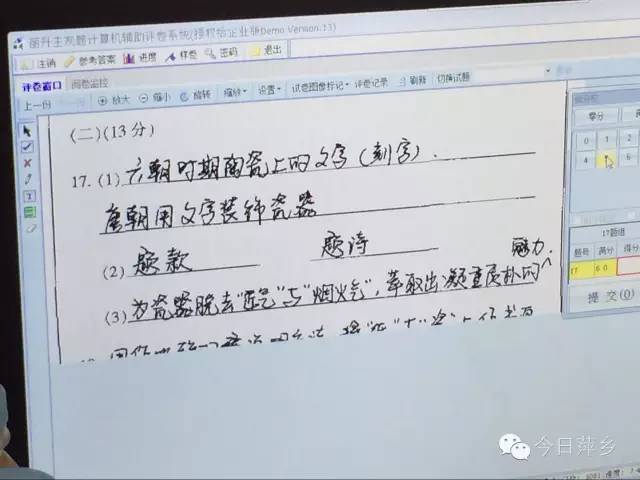 丽升主观题计算机辅助评卷系统(授权给企业版Demo Version.13)
注销 参考答案 进度 样卷 密码 退出
评卷窗口 阅卷监控
上一份 放大 缩小 旋转 缩放 设置 试卷图像标记 评卷记录 刷新 切换试题
零分
0 1
4 6
17题组
题号 满分 得分
17 6 0
提 交(O)
(二)(13分)
17. (1) 六朝时期陶瓷上的文字(刻字).
唐朝用文字装饰瓷器
(2) 题款 题诗
魅力.
(3) 为瓷器脱去"匠气"与"烟火气",萃取出凝重质朴的
今日萍乡